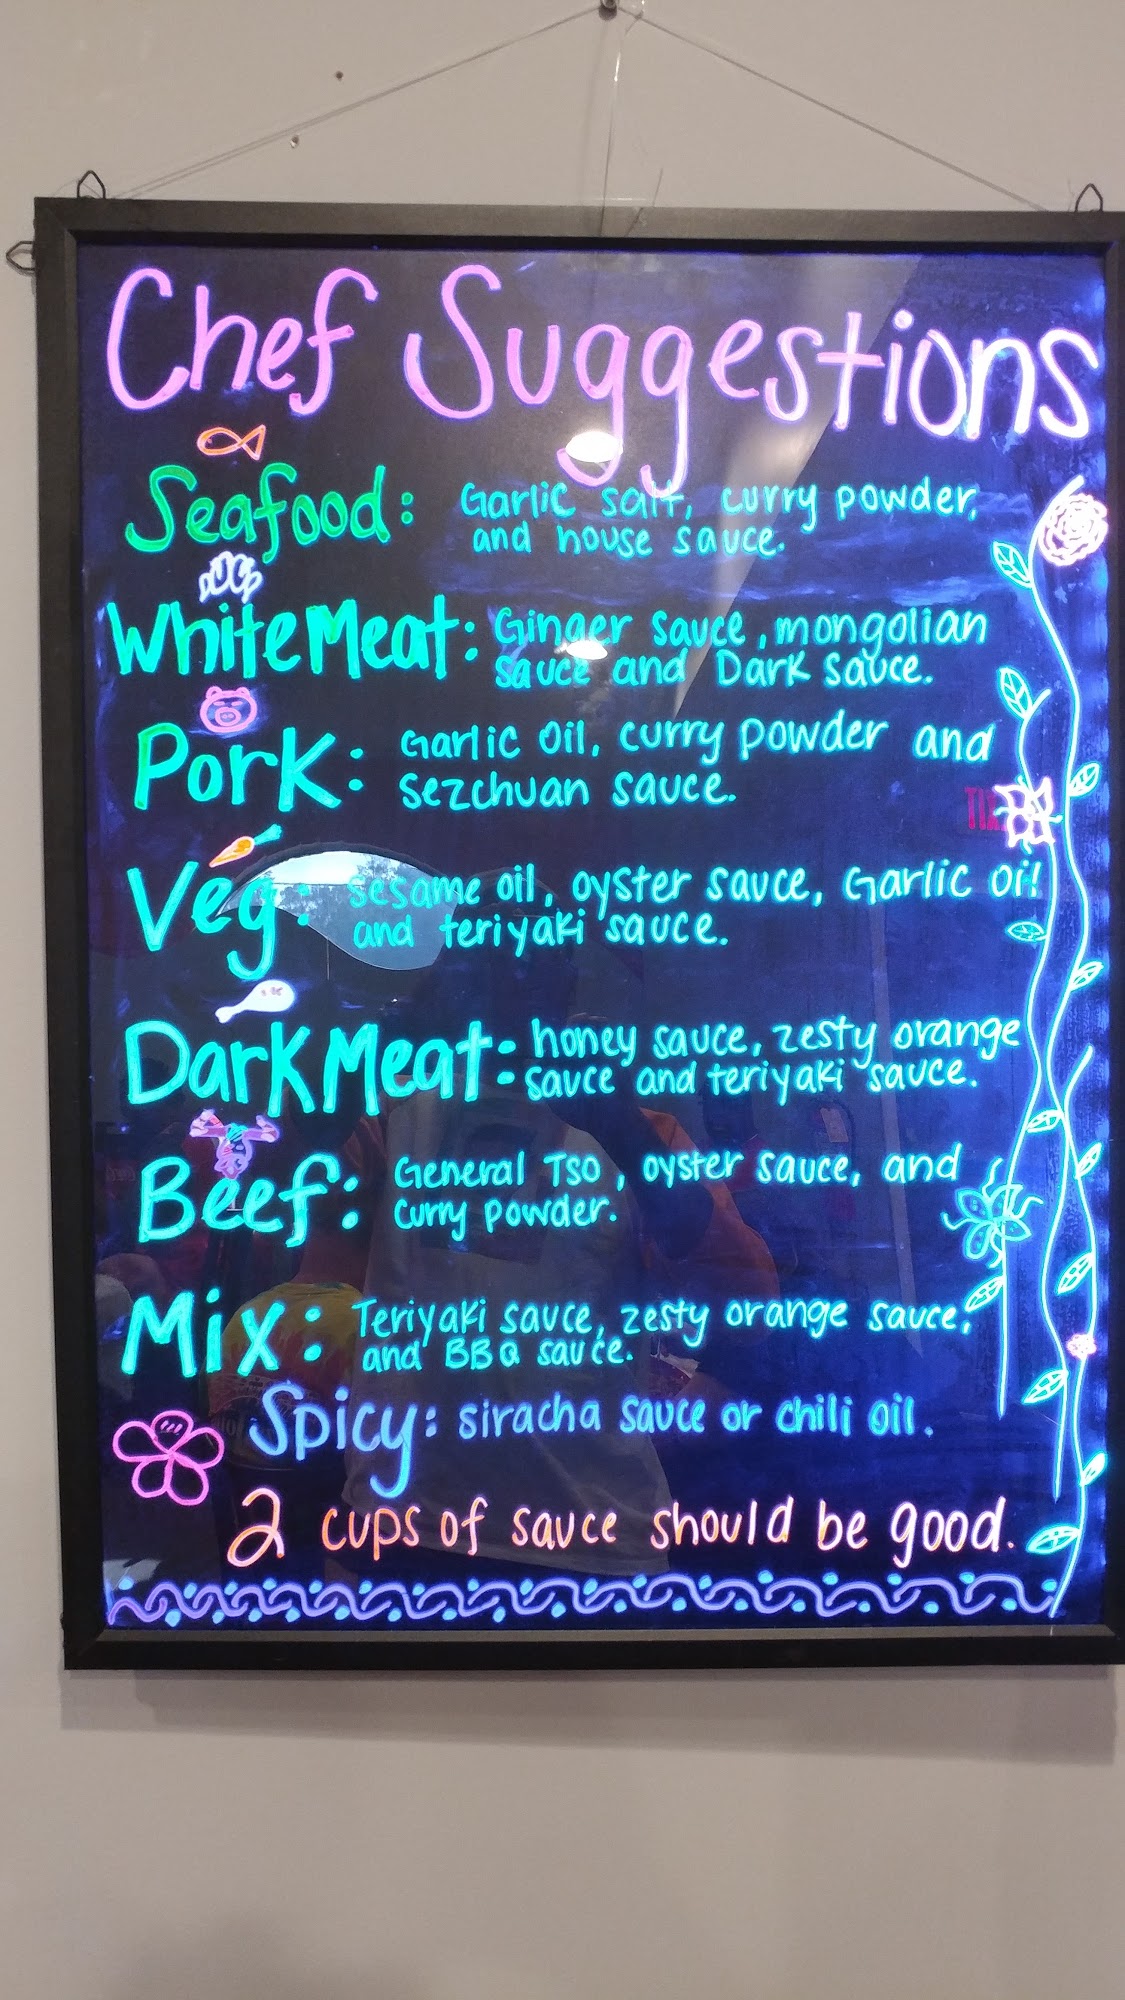 Chef Suggestions
Seafood: Garlic salt, curry powder,
and house sauce.
White Meat: Ginger sauce, mongolian
sauce and Dark sauce.
Pork: Garlic oil, curry powder and
sezchuan sauce.
Veg: sesame oil, oyster sauce, Garlic oil
and teriyaki sauce.
Dark Meat: honey sauce, zesty orange
sauce and teriyaki sauce.
Beef: General Tso, oyster sauce, and
curry powder.
Mix: Teriyaki sauce, zesty orange sauce,
and BBQ sauce.
Spicy: siracha sauce or chili oil.
2 cups of sauce should be good.